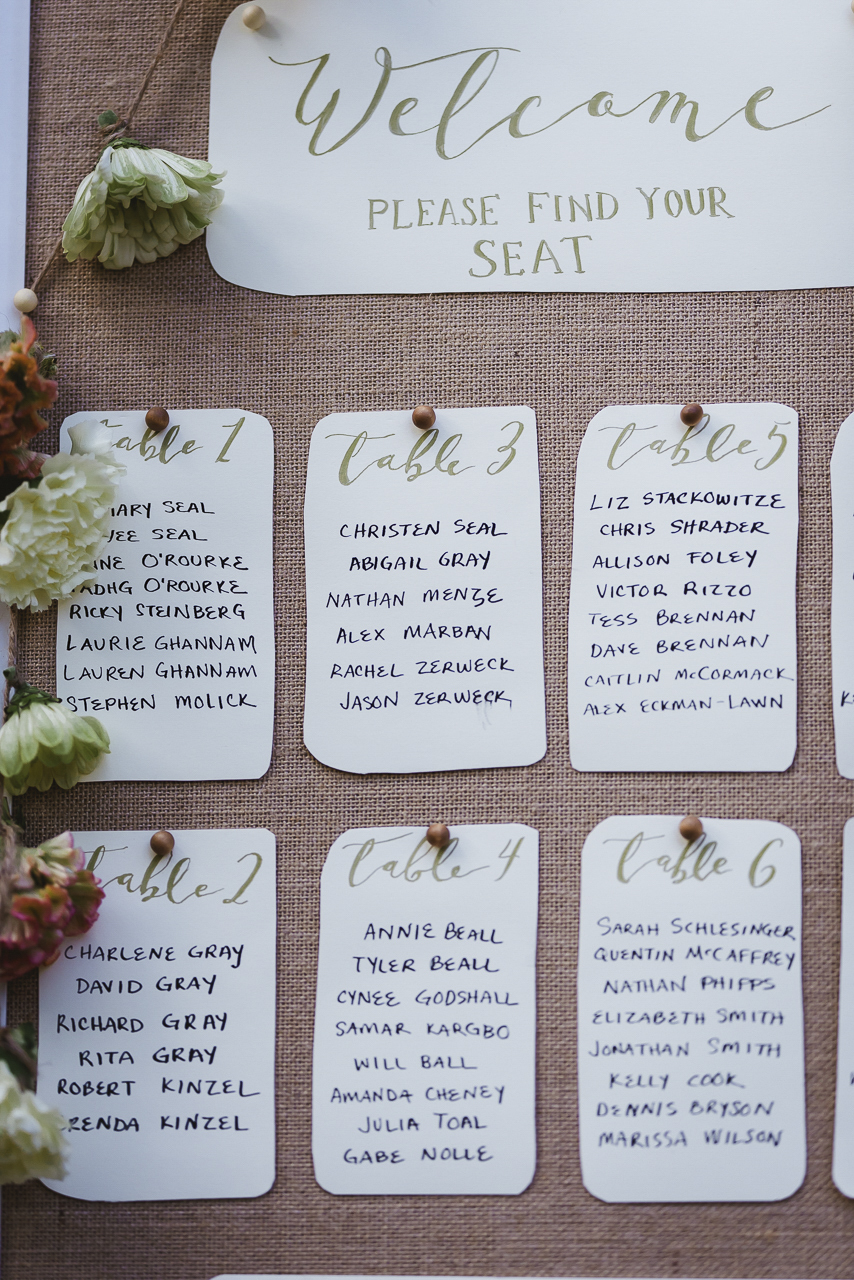 Welcome
PLEASE FIND YOUR
SEAT
table 1
SEAL
SEAL
O'ROURKE
O'ROURKE
RICKY STEINBERG
LAURIE GHANNAM
LAUREN GHANNAM
STEPHEN MOLICK
table 3
CHRISTEN SEAL
ABIGAIL GRAY
NATHAN MENZE
ALEX MARBAN
RACHEL ZERWECK
JASON ZERWECK
table 5
LIZ STACKOWITZE
CHRIS SHRADER
ALLISON FOLEY
VICTOR RIZZO
TESS BRENNAN
DAVE BRENNAN
CAITLIN McCORMACK
ALEX ECKMAN-LAWN
table 2
CHARLENE GRAY
DAVID GRAY
RICHARD GRAY
RITA GRAY
ROBERT KINZEL
KINZEL
table 4
ANNIE BEALL
TYLER BEALL
CYNEE GODSHALL
SAMAR KARGBO
WILL BALL
AMANDA CHENEY
JULIA TOAL
GABE NOLLE
table 6
SARAH SCHLESINGER
QUENTIN McCAFFREY
NATHAN PHIPPS
ELIZABETH SMITH
JONATHAN SMITH
KELLY COOK
DENNIS BRYSON
MARISSA WILSON